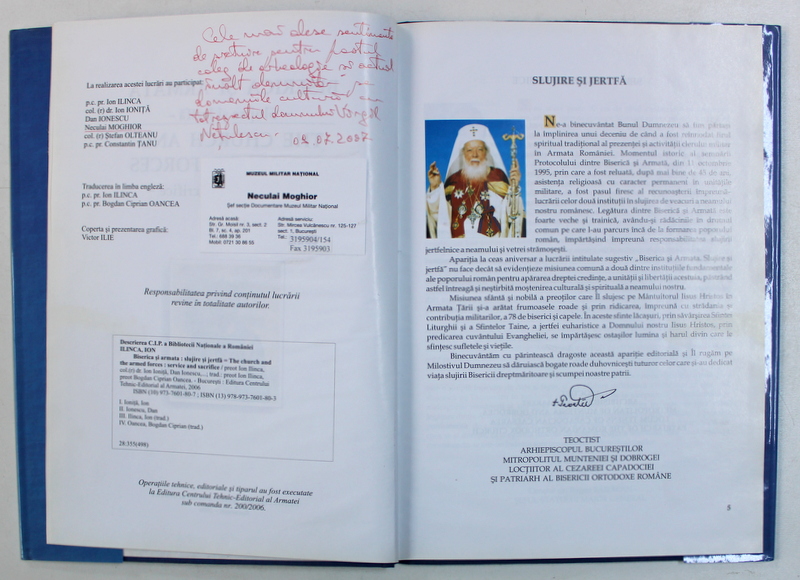 Cele mai alese sentimente
de prețuire pentru fostul
coleg de arheologie și actual
"înalt demnitar" în
domeniile culturii
domnului Virgil
Nițulescu
04.07.2007
La realizarea acestei lucrări au participat:
p.c. pr. Ion ILINCA
col. (r) dr. Ion IONIȚĂ
Dan IONESCU
Neculai MOGHIOR
col. (r) Ștefan OLTEANU
p.c. pr. Constantin ȚANU
Traducerea în limba engleză:
p.c. pr. Ion ILINCA
p.c. pr. Bogdan Ciprian OANCEA
Coperta și prezentarea grafică:
Victor ILIE
MUZEUL MILITAR NAȚIONAL
Neculai Moghior
Șef secție Documentare Muzeul Militar Național
Adresă acasă:
Str. Gr. Moisil nr. 3, sect. 2
Bl. 7, sc. 4, ap. 201
Tel.: 688 39 36
Mobil: 0721 30 86 55
Adresă serviciu:
Str. Mircea Vulcănescu nr. 125-127
sect. 1, București
Tel.: 3195904/154
Fax 3195903
Responsabilitatea privind conținutul lucrării
revine în totalitate autorilor.
Descrierea C.I.P. a Bibliotecii Naționale a României
ILINCA, ION
Biserica și armata : slujire și jertfă = The church and
the armed forces : service and sacrifice / preot Ion Ilinca,
col.(r) dr. Ion Ioniță, Dan Ionescu,...; trad.: preot Ion Ilinca,
preot Bogdan Ciprian Oancea. - București : Editura Centrului
Tehnic-Editorial al Armatei, 2006
ISBN (10) 973-7601-80-7 ; ISBN (13) 978-973-7601-80-3
I. Ioniță, Ion
II. Ionescu, Dan
III. Ilinca, Ion (trad.)
IV. Oancea, Bogdan Ciprian (trad.)
28:355(498)
Operațiile tehnice, editoriale și tiparul au fost executate
la Editura Centrului Tehnic-Editorial al Armatei
sub comanda nr. 200/2006.
SLUJIRE ȘI JERTFĂ
Ne-a binecuvântat Bunul Dumnezeu să fim părtași
la împlinirea unui deceniu de când a fost reînnodat firul
spiritual tradițional al prezenței și activității clerului militar
în Armata României. Momentul istoric al semnării
Protocolului dintre Biserică și Armată, din 11 octombrie
1995, prin care a fost reluată, după mai bine de 45 de ani,
asistența religioasă cu caracter permanent în unitățile
militare, a fost pasul firesc al reacoseperirii împreună-
lucrării celor două instituții în slujirea de veacuri a neamului
nostru românesc. Legătura dintre Biserică și Armată este
foarte veche și trainică, avându-și rădăcinile în drumul
comun pe care l-au parcurs încă de la formarea poporului
român, împărtășind împreună responsabilitatea slujirii
jertfelnice a neamului și vetrei strămoșești.
Apariția la ceas aniversar a lucrării intitulate sugestiv „Biserica și Armata. Slujire și
jertfă" nu face decât să evidențieze misiunea comună a două dintre instituțiile fundamentale
ale poporului român pentru apărarea dreptei credințe, a unității și libertății acestuia, păstrând
astfel întreagă și neștirbită moștenirea culturală și spirituală a neamului nostru.
Misiunea sfântă și nobilă a preoților care Îl slujesc pe Mântuitorul Iisus Hristos în
Armata Țării și-a arătat frumoasele roade și prin ridicarea, împreună cu strădania și
contribuția militarilor, a 78 de biserici și capele. În aceste sfinte lăcașuri, prin săvârșirea Sfintei
Liturghii și a Sfintelor Taine, a jertfei euharistice a Domnului nostru Iisus Hristos, prin
predicarea cuvântului Evangheliei, se împărtășesc ostașilor lumina și harul divin care le
sfințesc sufletele și viețile.
Binecuvântăm cu părintească dragoste această apariție editorială și Îl rugăm pe
Milostivul Dumnezeu să dăruiască bogate roade duhovnicești tuturor celor care și-au dedicat
viața slujirii Bisericii dreptmăritoare și scumpei noastre patrii.
TEOCTIST
ARHIEPISCOPUL BUCUREȘTILOR
MITROPOLITUL MUNTENIEI ȘI DOBROGEI
LOCȚIITOR AL CEZAREEI CAPADOCIEI
ȘI PATRIARH AL BISERICII ORTODOXE ROMÂNE
5